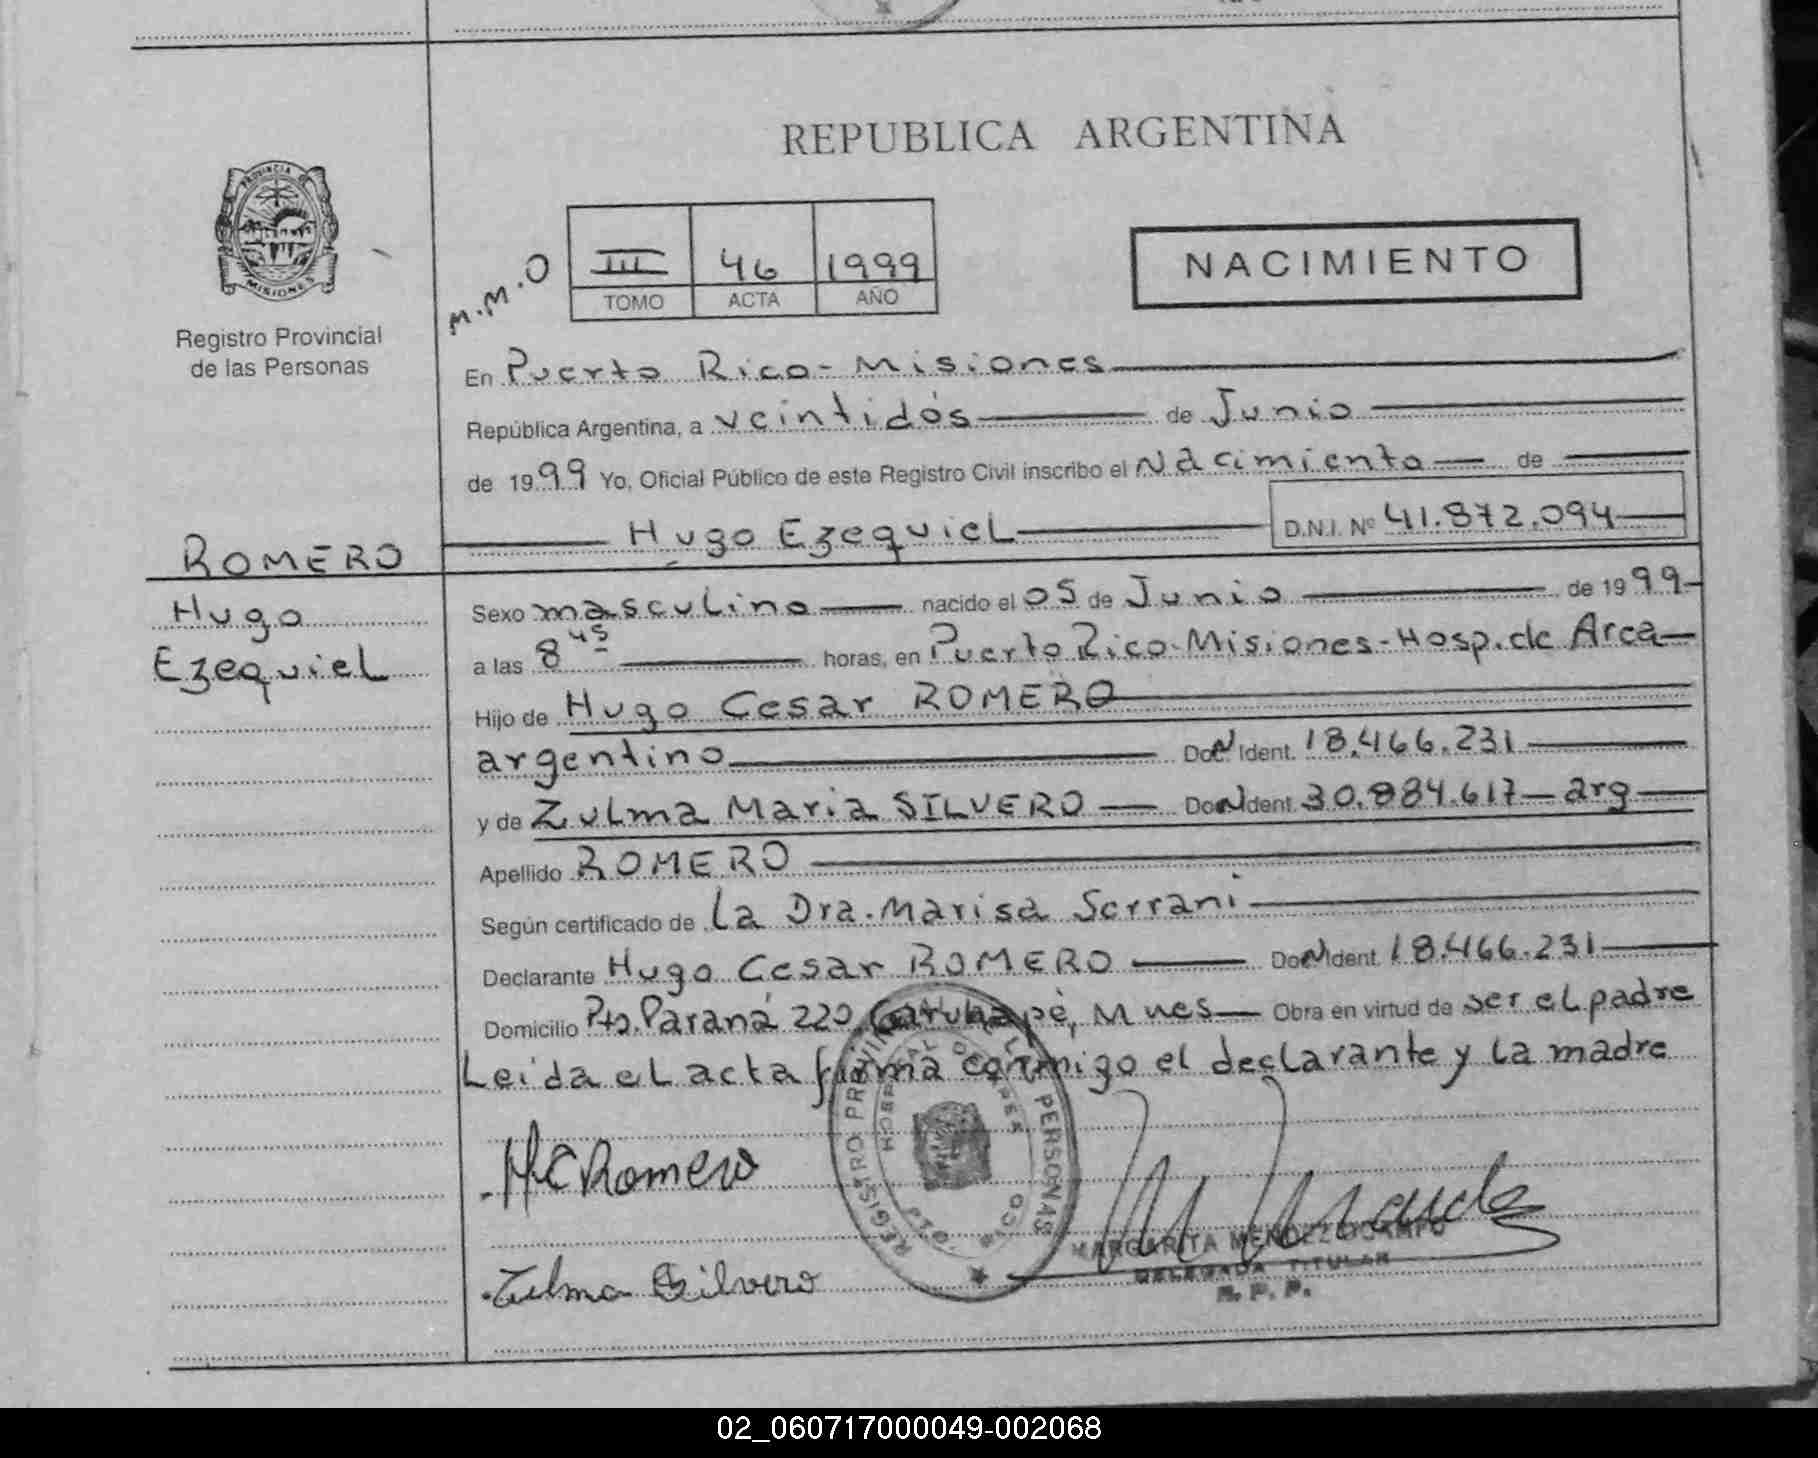 REPUBLICA ARGENTINA
PROVINCIA DE
MISIONES
Registro Provincial
de las Personas
M.M.O
III 46 1999
TOMO ACTA AÑO
NACIMIENTO
En Puerto Rico - Misiones
República Argentina, a veintidós de Junio
de 1999 Yo, Oficial Público de este Registro Civil inscribo el Nacimiento de
Hugo Ezequiel D.N.I. Nº 41.872.094
ROMERO
Hugo
Ezequiel
Sexo masculino nacido el 05 de Junio de 1999
a las 8 45 horas, en Puerto Rico-Misiones-Hosp. de Area
Hijo de Hugo Cesar ROMERO
argentino Doc. N Ident. 18.466.231
y de Zulma Maria SILVERO Doc. N Ident. 30.884.617 - arg
Apellido ROMERO
Según certificado de La Dra. Marisa Serrani
Declarante Hugo Cesar ROMERO Doc. N Ident. 18.466.231
Domicilio Pto. Paraná 220, Garuhapé, Mnes Obra en virtud de ser el padre
Leida el acta firma conmigo el declarante y la madre
HC Romero
REGISTRO PROVINCIAL DE LAS PERSONAS
MARGARITA MENDEZ OCAMPO
DELEGADA TITULAR
R. P. P.
Zulma Silvero
02_060717000049-002068